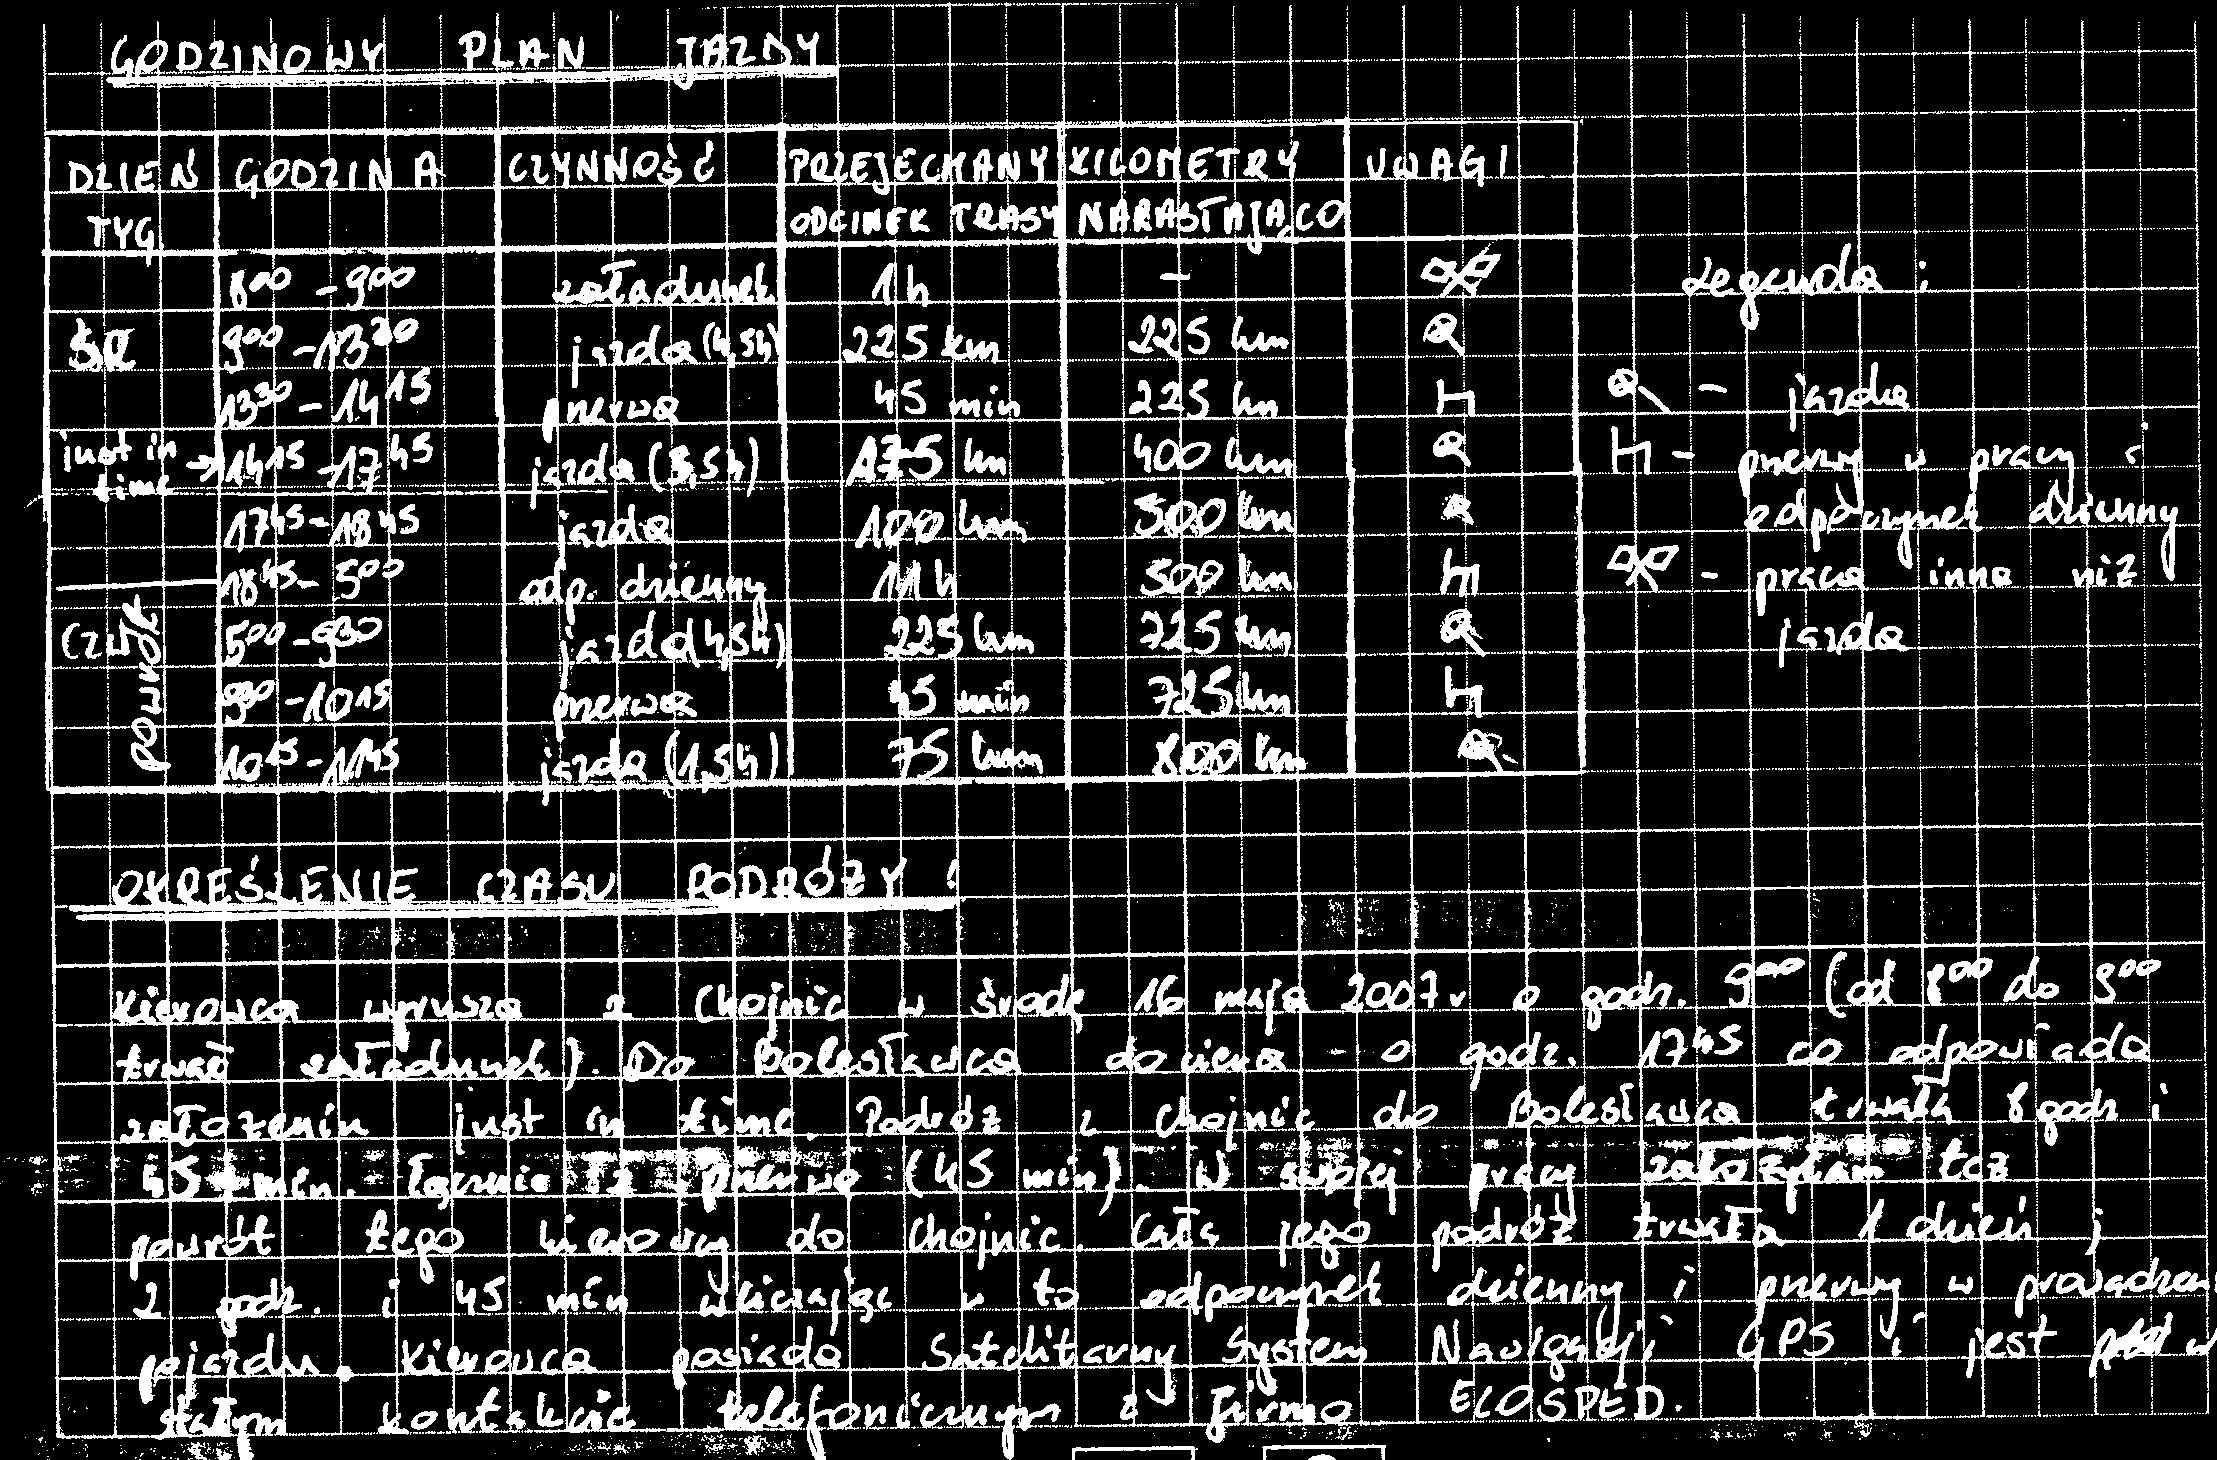 GODZINOWY PLAN JAZDY
DZIEŃ TYG. GODZINA CZYNNOŚĆ PRZEJECHANY ODCINEK TRASY KILOMETRY NARASTAJĄCO UWAGI
8⁰⁰ - 9⁰⁰ załadunek 1h -
ŚR 9⁰⁰ - 13³⁰ jazda (4,5h) 225 km 225 km
13³⁰ - 14¹⁵ przerwa 45 min 225 km
just in time → 14¹⁵ - 17⁴⁵ jazda (3,5h) 175 km 400 km
17⁴⁵ - 18⁴⁵ jazda 100 km 500 km
18⁴⁵ - 5⁰⁰ odp. dzienny 11h 500 km
CZW 5⁰⁰ - 9³⁰ jazda (4,5h) 225 km 725 km
powrót 9³⁰ - 10¹⁵ przerwa 45 min 725 km
10¹⁵ - 11⁴⁵ jazda (1,5h) 75 km 800 km
Legenda :
- jazda
- przerwy w pracy i
odpoczynek dzienny
- praca inna niż
jazda
OKREŚLENIE CZASU PODRÓŻY :
Kierowca wyrusza z Chojnic w środę 16 maja 2007r o godz. 9⁰⁰ (od 8⁰⁰ do 9⁰⁰
trwał załadunek). Do Bolesławca dociera o godz. 17⁴⁵ co odpowiada
założeniu just in time. Podróż z Chojnic do Bolesławca trwała 8 godz i
45 min. łącznie z przerwą (45 min). W swojej pracy założyłam też
powrót tego kierowcy do Chojnic. Cała jego podróż trwała 1 dzień i
2 godz. i 45 min wliczając w to odpoczynek dzienny i przerwy w prowadzeniu
pojazdu. Kierowca posiada Satelitarny System Nawigacji GPS i jest w
stałym kontakcie telefonicznym z firmą ECOSPED.